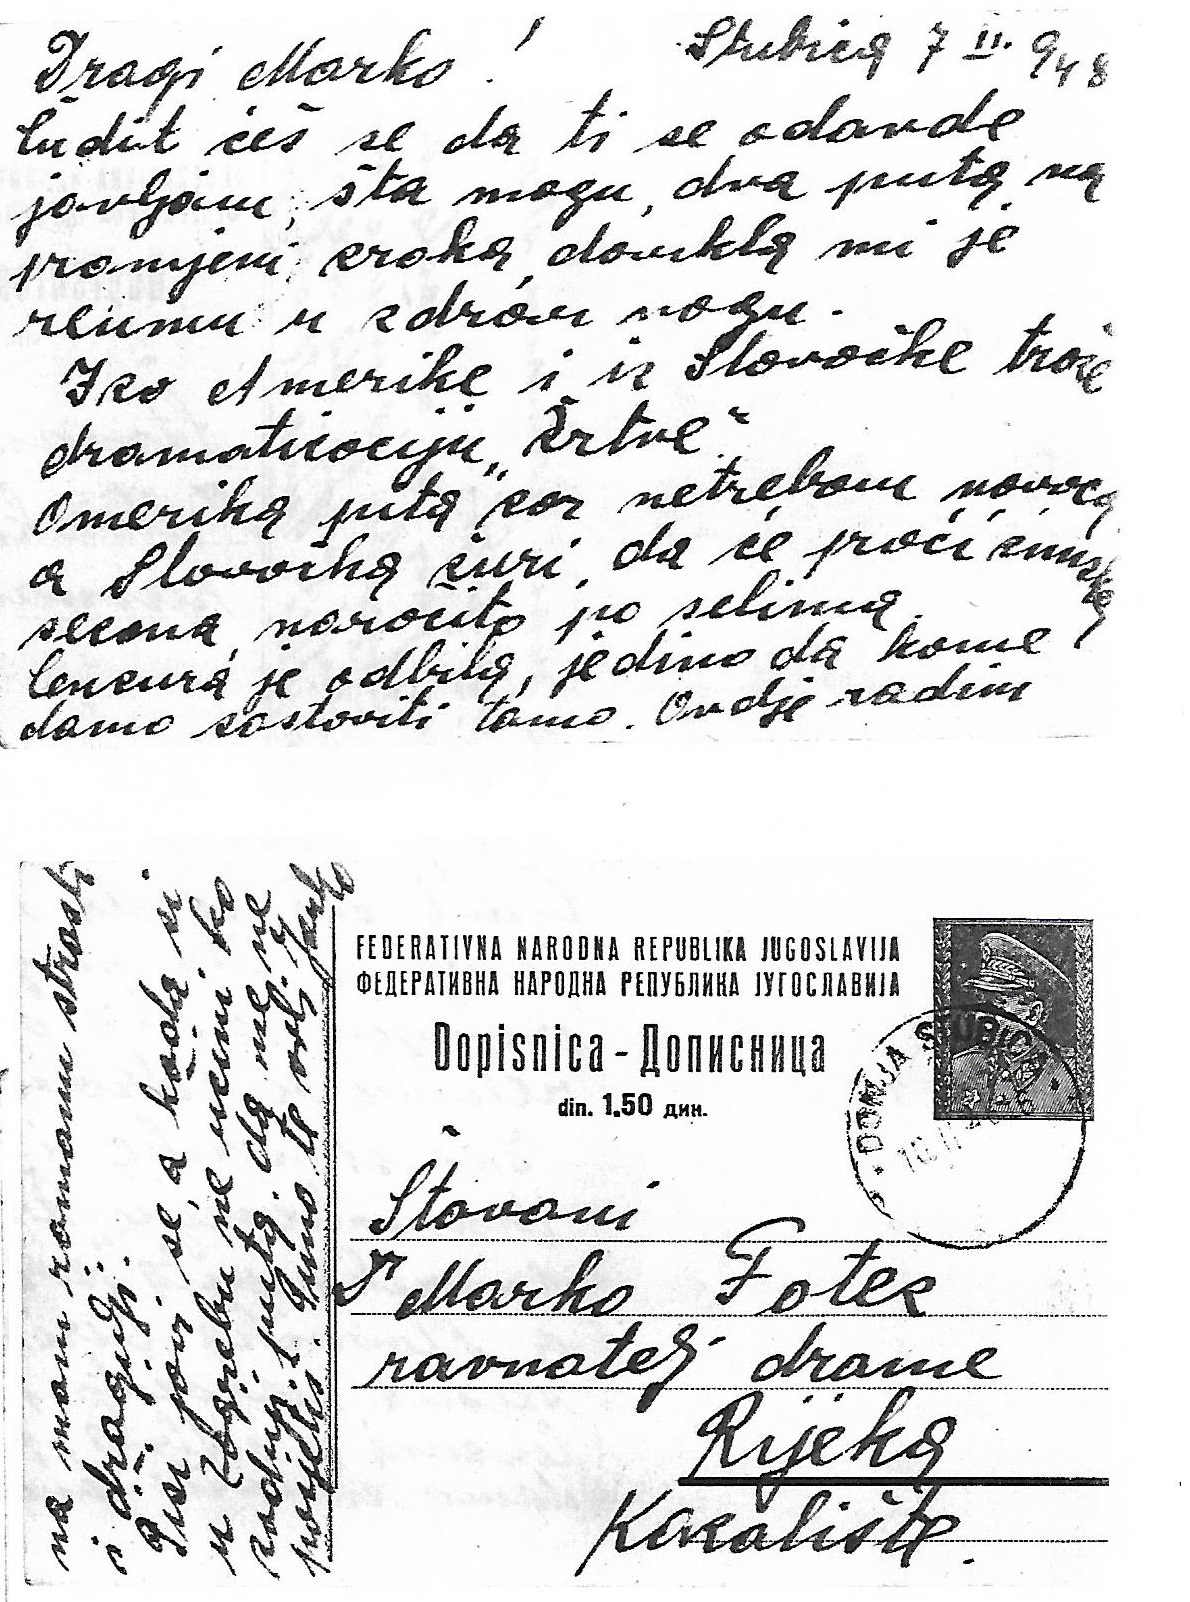 Dragi Marko! Stubica 7 II. 948
Čudit ćeš se da ti se odavde
javljam, šta mogu, dva puta na
promjeni zraka, dovukla mi je
reumu u zdravu nogu.
Iza Amerike i iz Slovačke traže
dramatizaciju „Žrtve"
Amerika pita zar netrebam novaca
a Slovačka žuri, da će proći zimska
sezona, naročito po selima
Cenzura je odbila, jedino da kome
damo sastaviti tamo. Ovdje radim
na mom romanu strasti
i dragulji.
Piši javi se, a kada si
u Zagrebu ne uzmi ko
zadnji puta da me ne
posjetiš. Puno te voli
FEDERATIVNA NARODNA REPUBLIKA JUGOSLAVIJA
ФЕДЕРАТИВНА НАРОДНА РЕПУБЛИКА ЈУГОСЛАВИЈА
Dopisnica - Дописница
din. 1.50 дин.
DONJA STUBICA
Štovani
Dr Marko Fotez
ravnatelj drame
Rijeka
Kazalište.